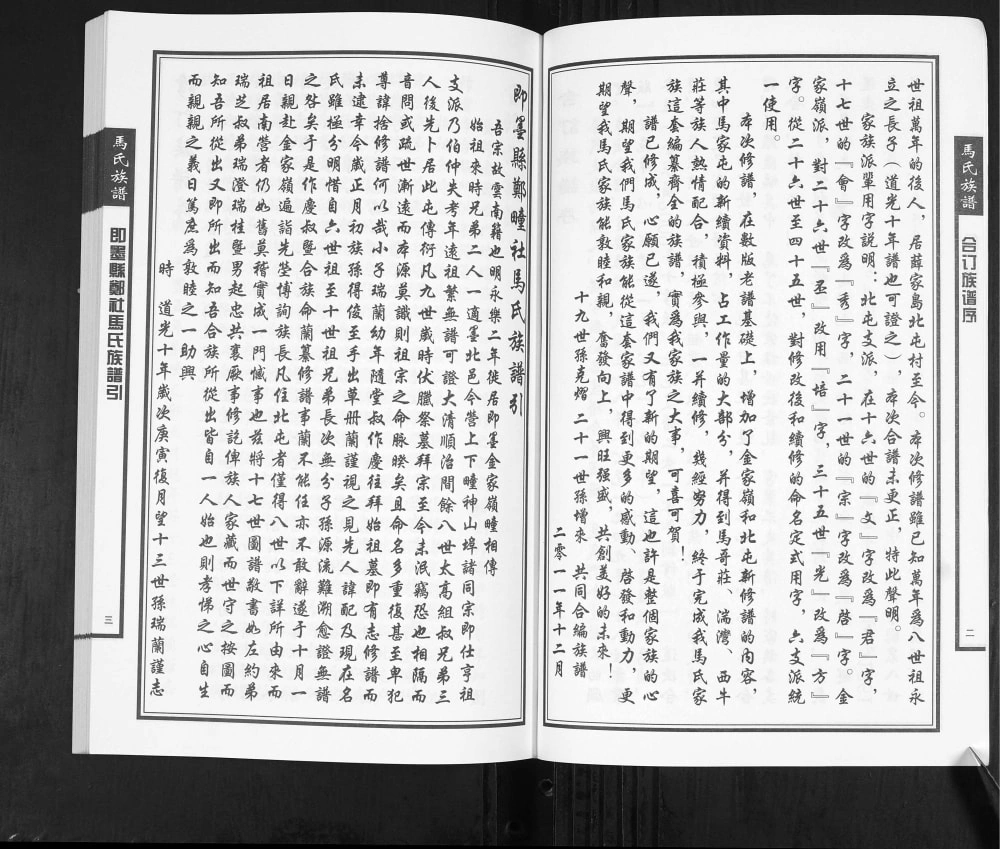 馬氏族譜
合订族谱序
二
世祖萬年的後人，居薛家島北屯村至今。本次修譜雖已知萬年爲八世祖永
立之長子（道光十年譜也可證之），本次合譜未更正，特此聲明。
家族派輩用字説明：北屯支派，在十六世的『文』字改爲『君』字，
十七世的『會』字改爲『秀』字，二十一世的『宗』字改爲『啓』字。金
家嶺派，對二十六世『丕』改用『培』字，三十五世『光』改爲『方』
字。從二十六世至四十五世，對修改後和續修的命名定式用字，六支派統
一使用。
本次修譜，在数版老譜基礎上，增加了金家嶺和北屯新修譜的內容，
其中馬家屯的新續資料，占工作量的大部分，并得到馬哥莊、湍灣、西牛
莊等族人熱情配合，積極參與，一并續修，幾經努力，終于完成我馬氏家
族這套編纂齊全的族譜，實爲我家族之大事，可喜可賀！
譜已修成，心願已遂，我們又有了新的期望，這也許是整個家族的心
聲，期望我們馬氏家族能從這套家譜中得到更多的感動、啓發和動力，更
期望我馬氏家族能敦睦和親，奮發向上，興旺强盛，共創美好的未來！
十九世孫克熠 二十一世孫增來 共同合編族譜
二零一一年十二月
即墨縣鄭疃社馬氏族譜引
吾宗故雲南籍也明永樂二年徙居即墨金家嶺疃相傳
始祖來時兄弟二人一適墨北邑今營上下疃神山埠諸同宗即仕亨祖
支派乃伯仲失考年遠祖繁無譜可證大清順治間餘八世太高組叔兄弟三
人後先卜居此屯傳衍凡九世歲時伏臘祭墓拜宗至今未泯竊恐也相隔而
音問或疏世漸遠而本源莫識則祖宗之命脉暌矣且命名多重復甚至卑犯
尊諱捨修譜何以哉小子瑞蘭幼年隨堂叔作慶往拜始祖墓即有志修譜而
未逮幸今歲正月初族孫得俊至手出草册蘭謹視之見先人諱配及現在名
氏雖極分明惜自六世祖至十世祖兄弟長次無分子孫源流難溯愈證無譜
之咎矣于是作慶叔暨合族命蘭纂修譜事蘭不能任亦不敢辭遂于十月一
日親赴金家嶺遍詣先塋博詢族長凡住北屯者僅得八世以下詳所由來而
祖居南營者仍如舊莫稽實成一門憾事也兹將十七世圖譜敬書如左約弟
瑞芝叔弟瑞澄瑞桂暨男起忠共襄厥事修訖俾族人家藏而世守之按圖而
知吾所從出又即所出而知吾合族所從出皆自一人始也則孝悌之心自生
而親親之義日篤庶爲敦睦之一助與
時 道光十年歲次庚寅復月望十三世孫瑞蘭謹志
馬氏族譜
即墨縣鄭社馬氏族譜引
三